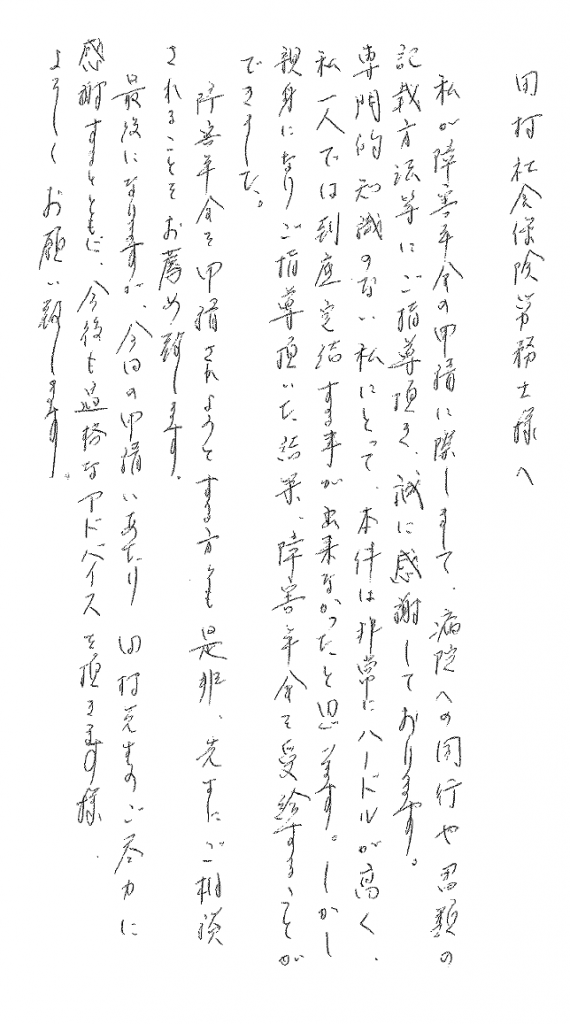 田村社会保険労務士様へ
私が障害年金の申請に際しまして、病院への同行や書類の
記載方法等にご指導頂き、誠に感謝しております。
専門的知識のない私にとって、本件は非常にハードルが高く、
私一人では到底完結する事が出来なかったと思います。しかし
親身になりご指導頂いた結果、障害年金を受給することが
できました。
障害年金を申請されようとする方にも是非、先生にご相談
されることをお薦め致します。
最後になりますが、今回の申請にあたり田村先生のご尽力に
感謝するとともに、今後も適格なアドバイスを頂きます様、
よろしくお願い致します。